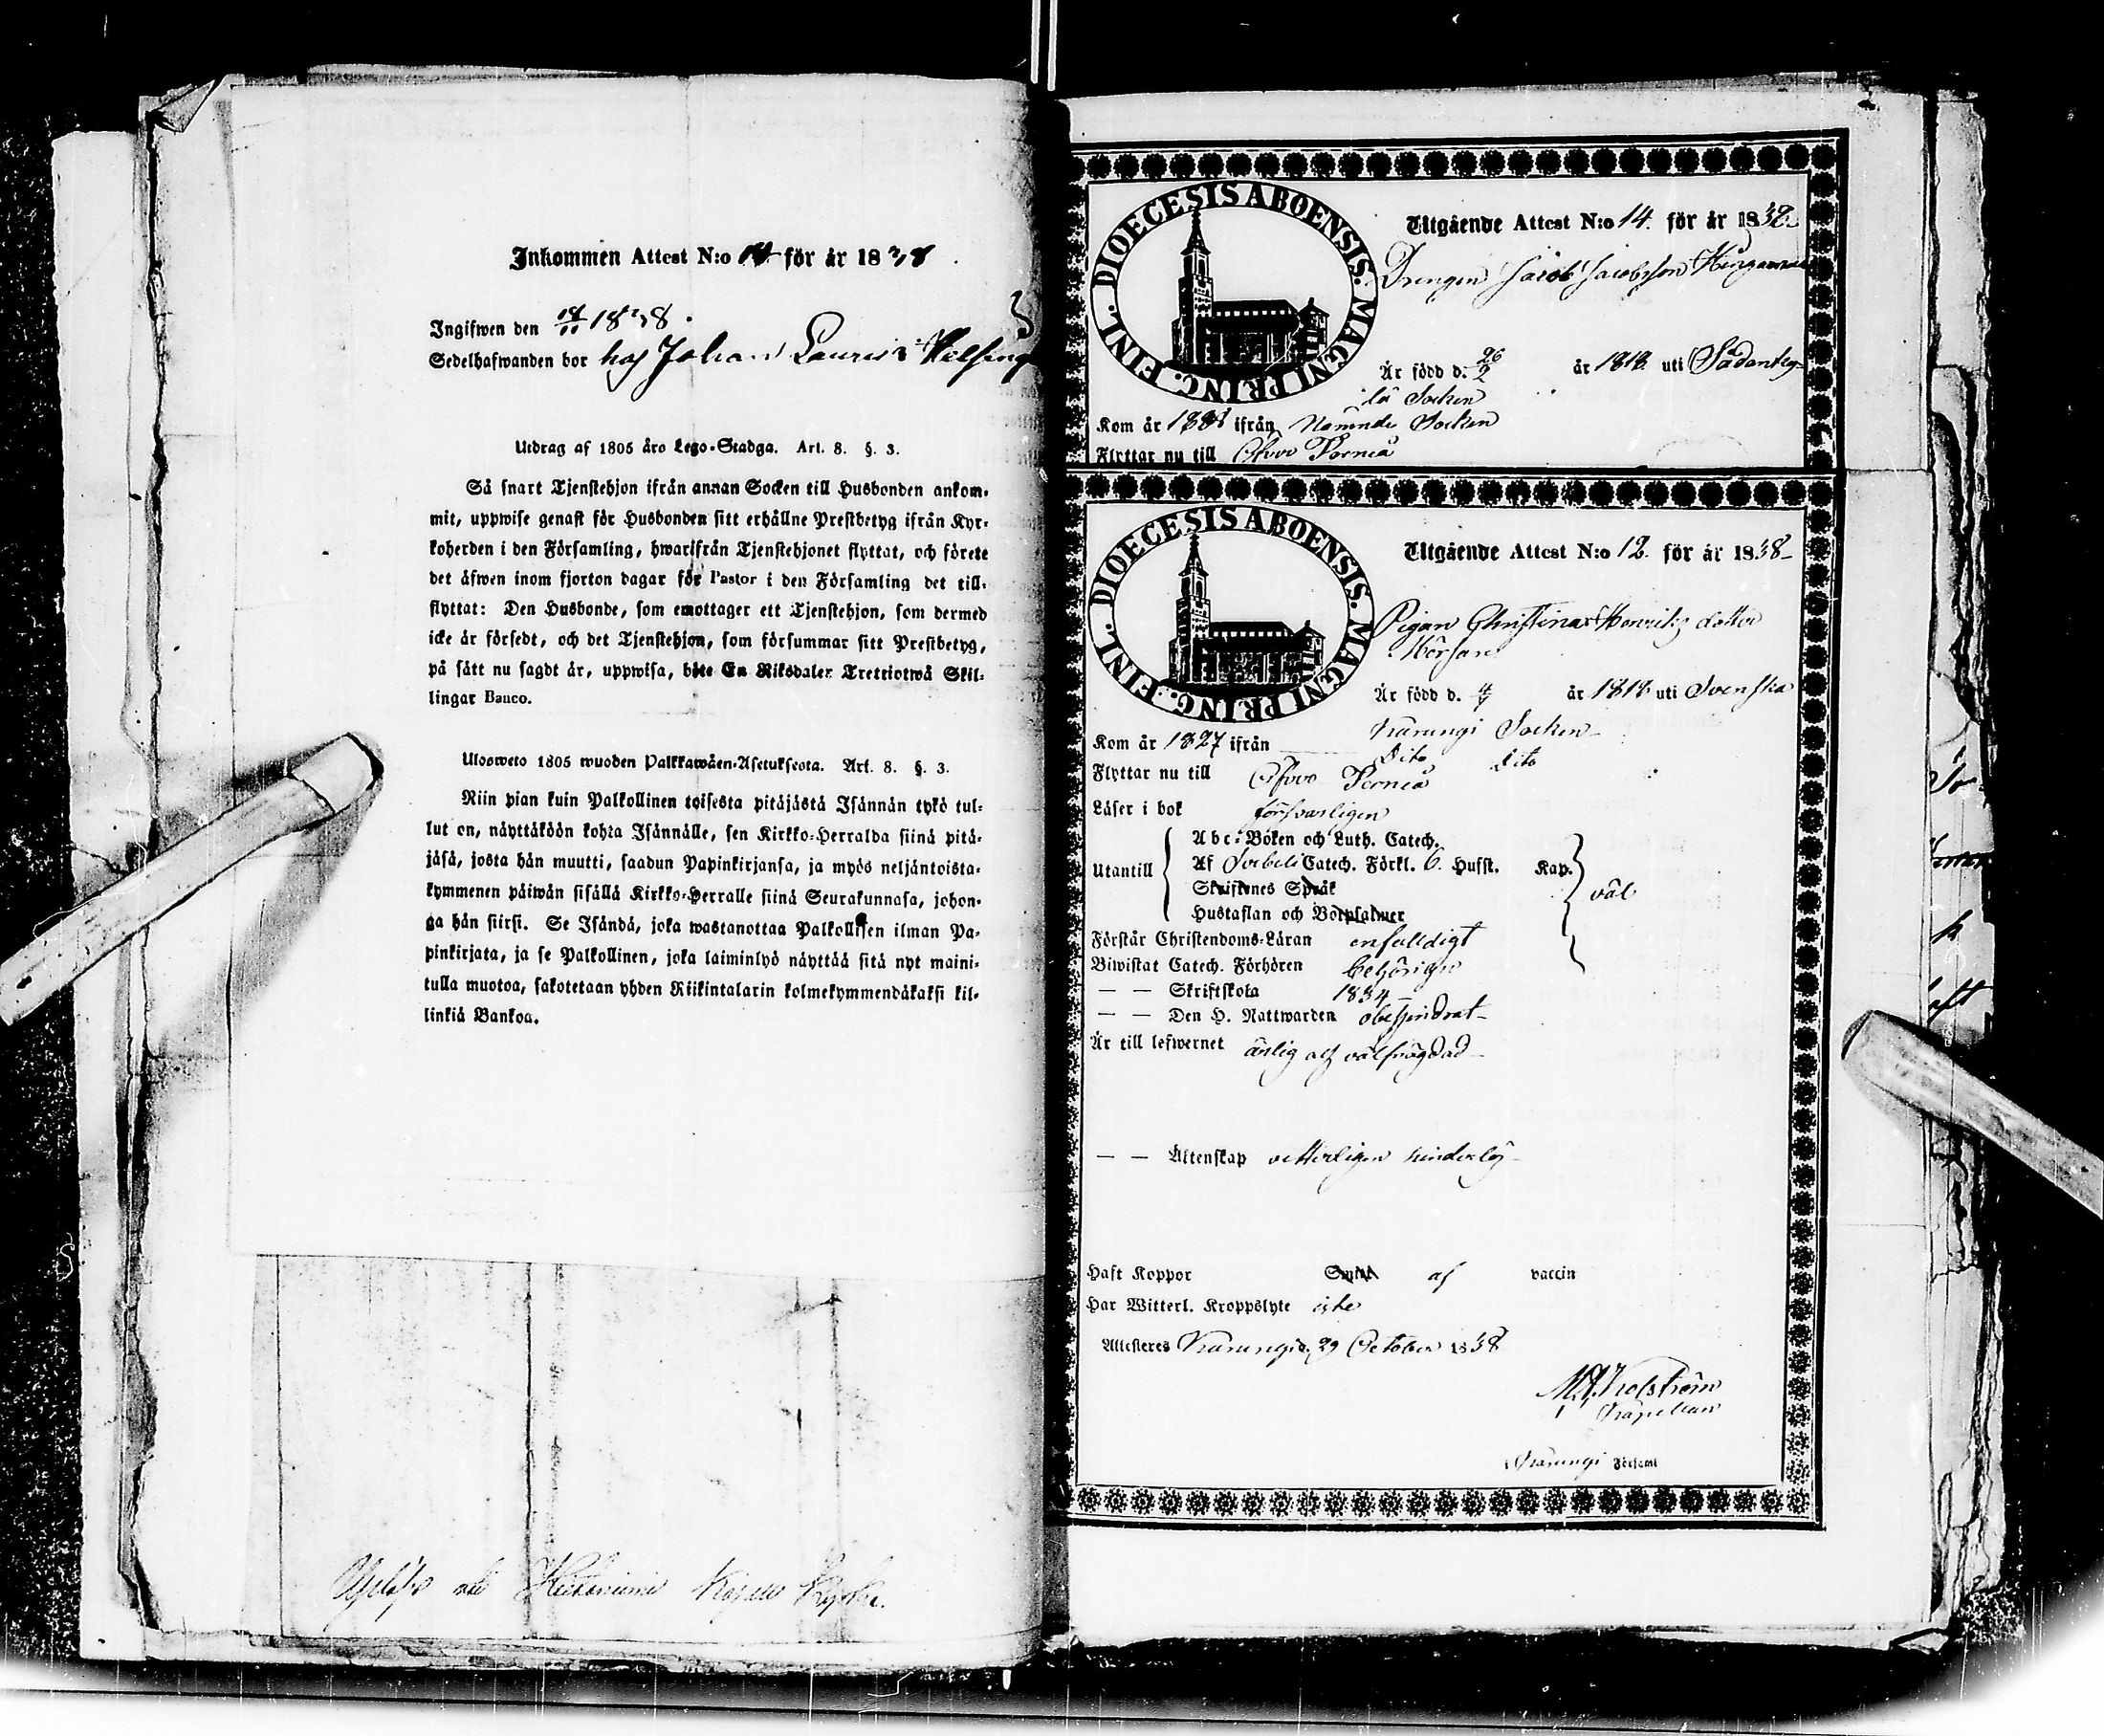 Inkommen Attest N:o 14 för år 1838
Ingifwen den 18/11 1838.
Sedelhafwanden bor hos Johan Lauri i Helsing
Utdrag af 1805 års Lego-Stadga. Art. 8. §. 3.
Så snart Tjenstehjon ifrån annan Socken till Husbonden ankom-
mit, uppwise genast för Husbonden sitt erhållne Prestbetyg ifrån Kyr-
koherden i den Församling, hwarifrån Tjenstehjonet flyttat, och förete
det äfwen inom fjorton dagar för Pastor i den Församling det till-
flyttat: Den Husbonde, som emottager ett Tjenstehjon, som dermed
icke är försedt, och det Tjenstehjon, som försummar sitt Prestbetyg,
på sätt nu sagdt är, uppwisa, böte En Riksdaler Trettiotwå Skil-
lingar Banco.
Ulosweto 1805 wuoden Palkkawäen-Asetuksesta. Art. 8. §. 3.
Niin pian kuin Palkollinen toisesta pitäjästä Isännän tykö tul-
lut on, näyttäköön kohta Isännälle, sen Kirkko-Herralda siinä pitä-
jäsä, josta hän muutti, saadun Papinkirjansa, ja myös neljäntoista-
kymmenen päiwän sisällä Kirkko-Herralle siinä Seurakunnasa, johon-
ga hän siirsi. Se Isändä, joka wastanottaa Palkollisen ilman Pa-
pinkirjata, ja se Palkollinen, joka laiminlyö näyttää sitä nyt maini-
tulla muotoa, sakotetaan yhden Riikintalarin kolmekymmendäkaksi kil-
linkiä Bankoa.
DIOECESIS ABOENSIS. MAGNI PRING. FINL.
Utgående Attest N:o 14. för år 1838
Drengen Jacob Jacobsson
Är född d. 26/2 år 1818 uti
Socken
Kom år ifrån Nämnde Socken
Flyttar nu till Öfver Torneå
DIOECESIS ABOENSIS. MAGNI PRING. FINL.
Utgående Attest N:o 12. för år 1838
Pigan Christina Henriks dotter
Är född d. år 1818 uti Svenska
Karungi Socken
Kom år 1827 ifrån Dito Dito
Flyttar nu till Öfver Torneå
Läser i bok försvarligen
Utantill
Abc-Boken och Luth. Catech.
Af Svebelii Catech. Förkl. 6. Hufst. Kap.
Skriftenes Språk
Hustaflan och Botpsalmer
väl
Förstår Christendoms-Läran enfaldigt
Biwistat Catech. Förhören behörigen
— — Skriftskola 1834
— — Den H. Nattwarden obehindrat
Är till lefwernet ärlig och välfrägdad
— — Äktenskap vetterligen hinderlös
Haft Koppor Smitt af vaccin
Har Witterl. Kroppslyte icke
Attesteras Karungi d. 29 October 1838
Kapellan
Karungi Församl